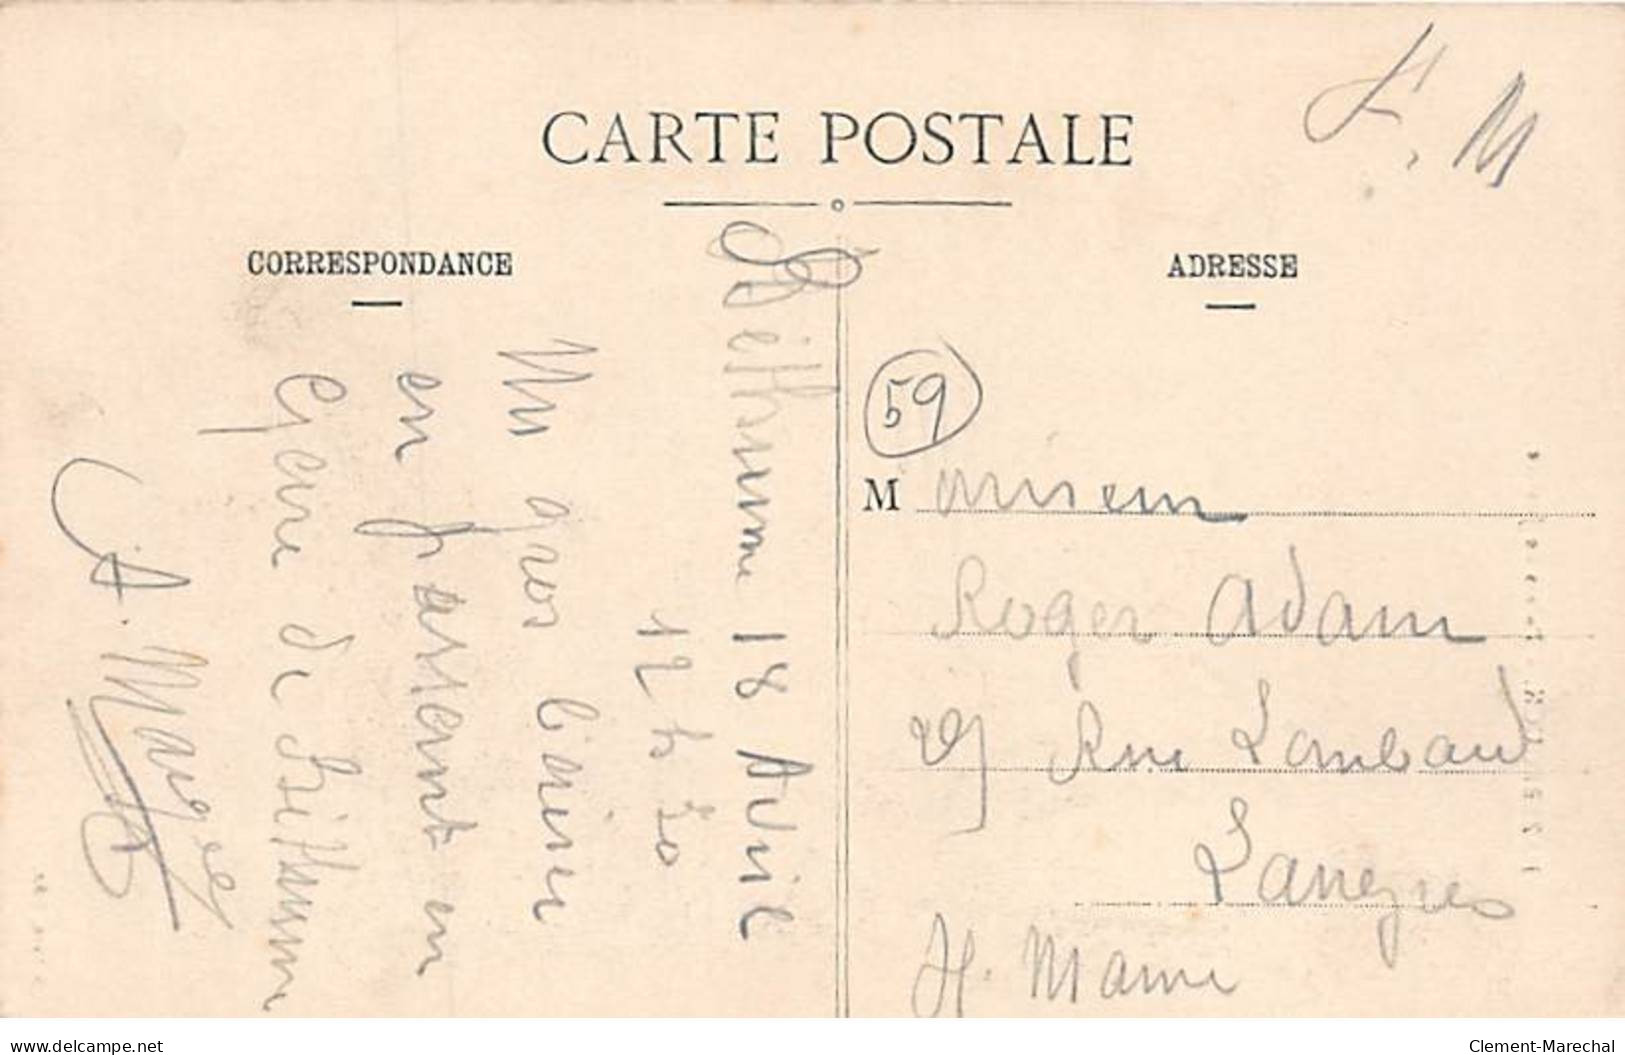 F. M
CARTE POSTALE
CORRESPONDANCE
Béthune 18 Avril
12 h 30
Un gros baiser
en passant en
Gare de Béthune
A. Mauge
ADRESSE
59
Monsieur
Roger Adam
Rue Lombard
Langres
H. Marne
delcampe.net
Clement-Marechal